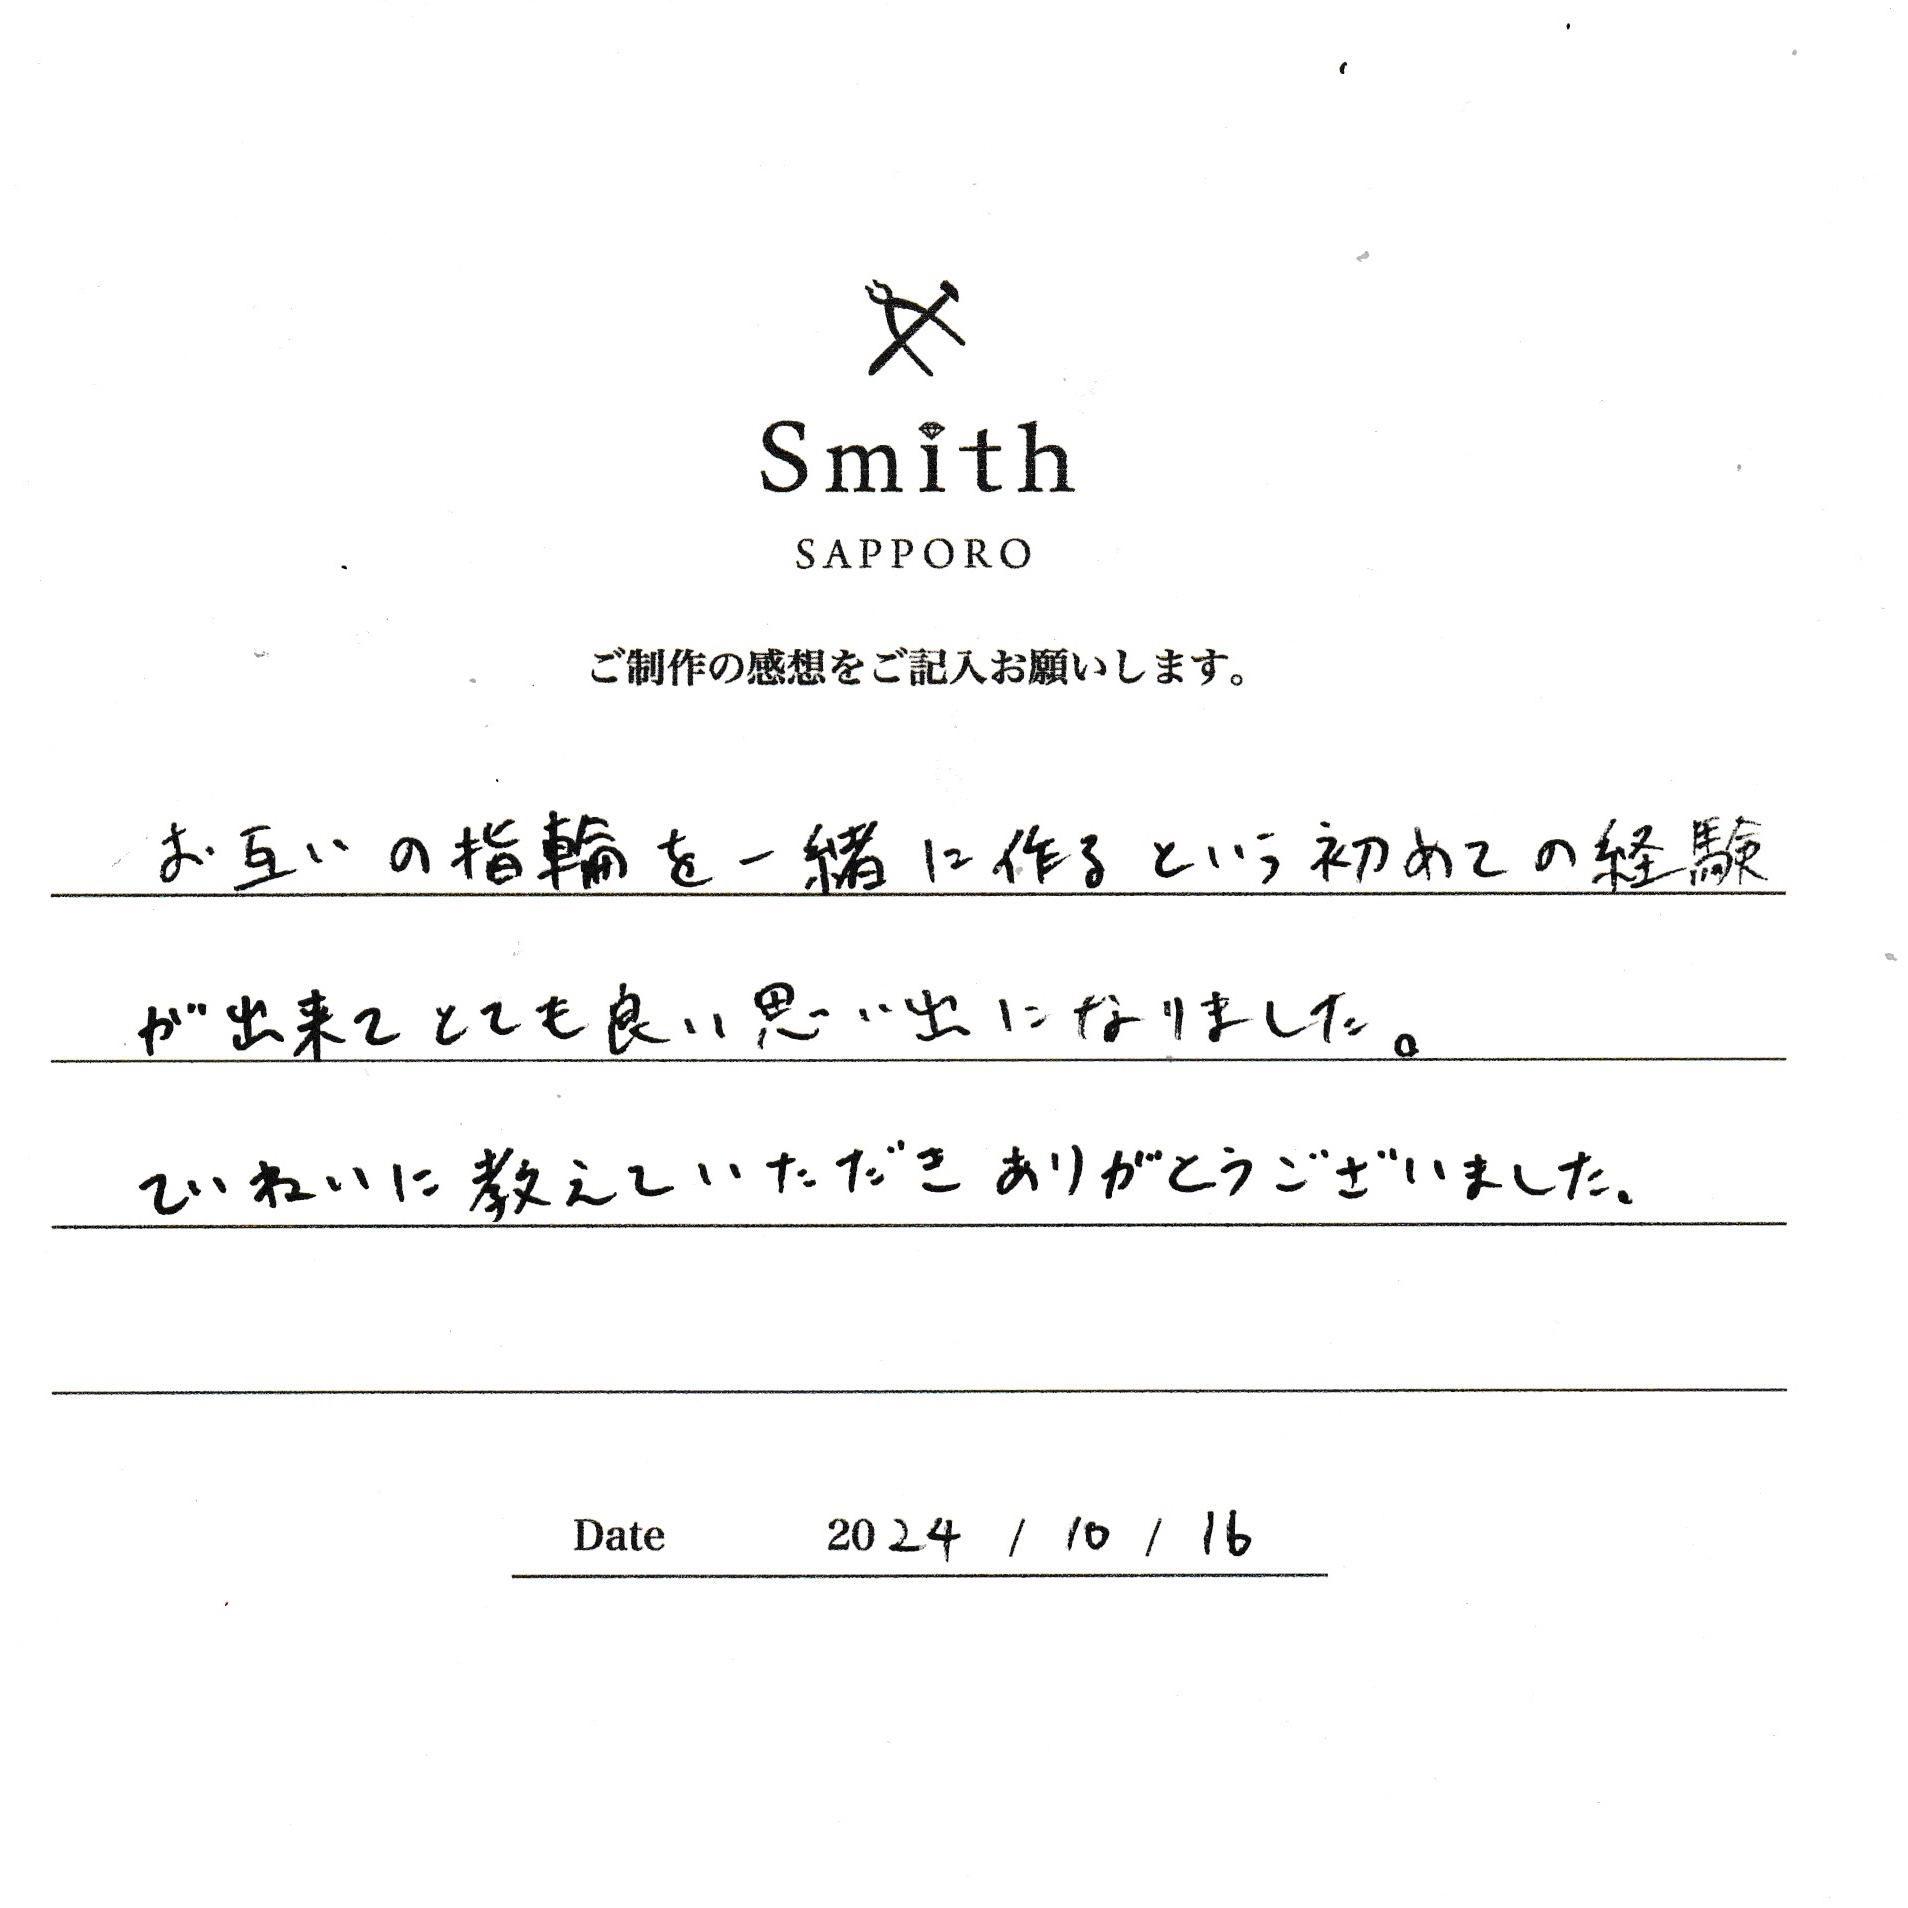 Smith
SAPPORO
ご制作の感想をご記入お願いします。
お互いの指輪を一緒に作るという初めての経験
が出来てとても良い思い出になりました。
ていねいに教えていただきありがとうございました。
Date 2024 / 10 / 16